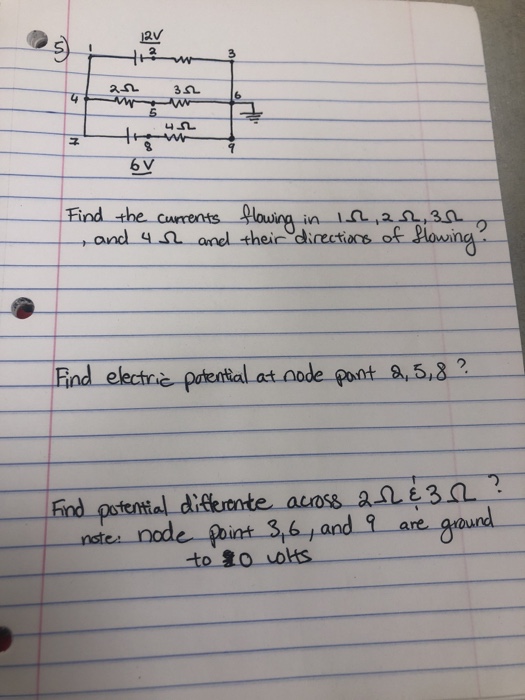 5)
12V
1 2 3
2Ω 3Ω
4 5 6
4Ω
7 8 9
6V
Find the currents flowing in 1Ω, 2Ω, 3Ω
, and 4Ω and their directions of flowing?
Find electric potential at node point 2, 5, 8?
Find potential differente across 2Ω & 3Ω?
note: node point 3, 6, and 9 are ground
to 0 volts